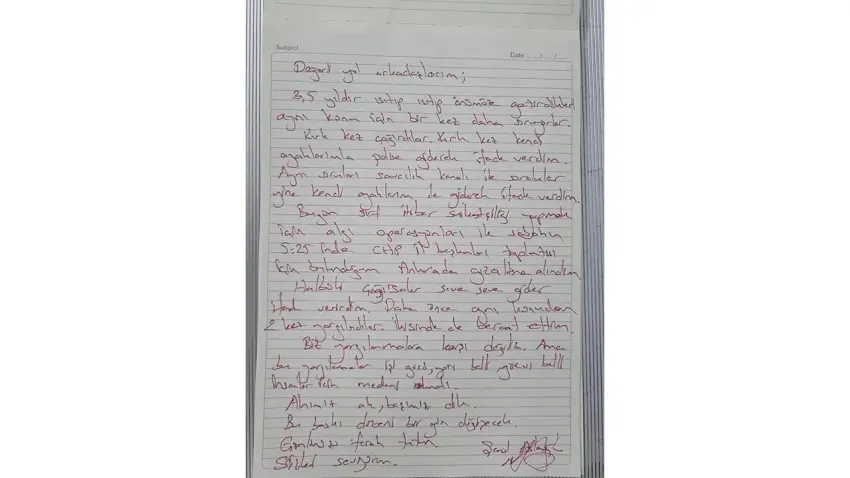 Subject
Date ..... / /
Değerli yol arkadaşlarım;
3,5 yıldır ısıtıp ısıtıp önümüze getirdikleri
aynı konu için bir kez daha soruyorlar.
Kırk kez çağırdılar. Kırk kez kendi
ayaklarımla polise giderek ifade verdim.
Aynı soruları savcılık kanalı ile sordular
yine kendi ayaklarım ile giderek ifade verdim.
Bugün sırf itibar suikastçiliği yapmak
için algı operasyonları ile sabahın
5:25 inde CHP il başkanları toplantısı
için bulunduğum Ankarada gözaltına alındım
Halbuki çağırsalar seve seve gider
ifade verirdim. Daha önce aynı konudan
2 kez yargılandılar. İkisinde de beraat ettim.
Biz yargılanmalara karşı değiliz. Ama
bu yargılamalar işi gücü, yeri belli, yurdu belli
insanlar için medeni olmalı.
Alnımız ak, başımız dik.
Bu baskı düzeni bir gün değişecek.
Gönlünüzü ferah tutun
Sizleri seviyorum.